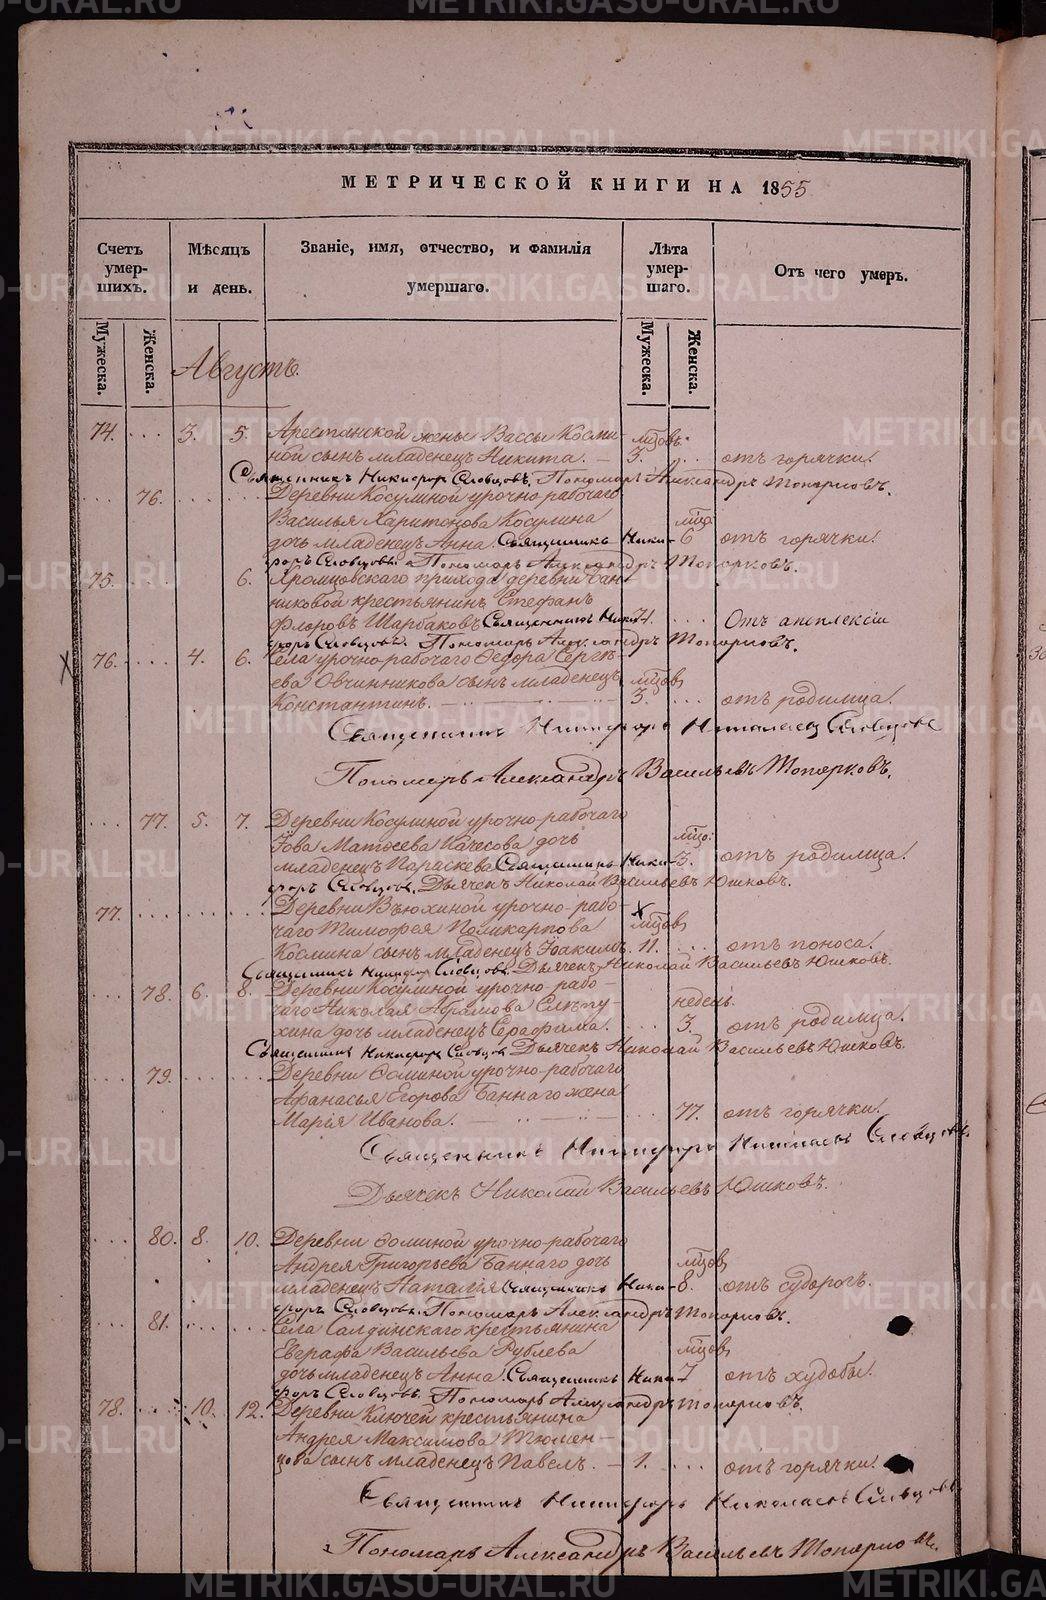 МЕТРИЧЕСКОЙ КНИГИ НА 1855
Счетъ умершихъ.
Мѣсяцъ и день.
Званіе, имя, отчество, и фамилія умершаго.
Лѣта умершаго.
Отъ чего умеръ.
Мужеска.
Женска.
Мужеска.
Женска.
Августъ.
74. .... 3. 5. Арестанской жены Вассы Козми-
ной сынъ младенецъ Никита. — мцовъ 3. ... отъ горячки.
Священникъ Никифоръ Словцовъ. Пономарь Александръ Топорковъ.
... 76. Деревни Косулиной урочно-рабочаго
Василья Харитонова Косулина
дочь младенецъ Анна. Священникъ Ники- мцо. 6 отъ горячки.
форъ Словцовъ. Пономарь Александръ Топорковъ.
75. .... 6. Хромцовскаго прихода деревни Бан-
никовой крестьянинъ Стефанъ
Флоровъ Щербаковъ Священникъ Ники- 71. ... Отъ апоплексіи
форъ Словцовъ. Пономарь Александръ Топорковъ.
76. .... 4. 6. Села урочно-рабочаго Ѳедора Сергѣ-
ева Овчинникова сынъ младенецъ
Константинъ. — мцовъ 3. ... отъ родимца.
Священникъ Никифоръ Николаевъ Словцовъ
Пономарь Александръ Васильевъ Топорковъ.
... 77. 5. 7. Деревни Косулиной урочно-рабочаго
Іова Матѳеева Качесова дочь
младенецъ Параскева Священникъ Ники- мцо. 3. отъ родимца.
форъ Словцовъ. Дьячекъ Николай Васильевъ Юшковъ.
77. .... Деревни Вьюхиной урочно-рабо-
чаго Тимофея Поликарпова
Космина сынъ младенецъ Іоакимъ. мцовъ 11. ... отъ поноса.
Священникъ Никифоръ Словцовъ. Дьячекъ Николай Васильевъ Юшковъ.
... 78. 6. 8. Деревни Косулиной урочно-рабо-
чаго Николая Абрамова Слѣпу-
хина дочь младенецъ Серафима. ... недель. 3. отъ родимца.
Священникъ Никифоръ Словцовъ Дьячекъ Николай Васильевъ Юшковъ.
... 79. Деревни Ѳоминой урочно-рабочаго
Афанасья Егорова Баннаго жена
Марія Иванова. — ... 77. отъ горячки.
Священникъ Никифоръ Николаевъ Словцовъ.
Дьячекъ Николай Васильевъ Юшковъ.
... 80. 8. 10. Деревни Ѳоминой урочно-рабочаго
Андрея Григорьева Баннаго дочь
младенецъ Наталія Священникъ Ники- мцовъ 8. отъ судорогъ.
форъ Словцовъ. Пономарь Александръ Топорковъ.
... 81. Села Салдинскаго крестьянина
Еверафа Васильева Рублева
дочь младенецъ Анна. Священникъ Ники- мцовъ 7 отъ худобы.
форъ Словцовъ. Пономарь Александръ Топорковъ.
78. ... 10. 12. Деревни Ключей крестьянина
Андрея Максимова Тюмен-
цова сынъ младенецъ Павелъ. — 1. ... отъ горячки.
Священникъ Никифоръ Николаевъ Словцовъ
Пономарь Александръ Васильевъ Топорковъ.
METRIKI.GASO-URAL.RU